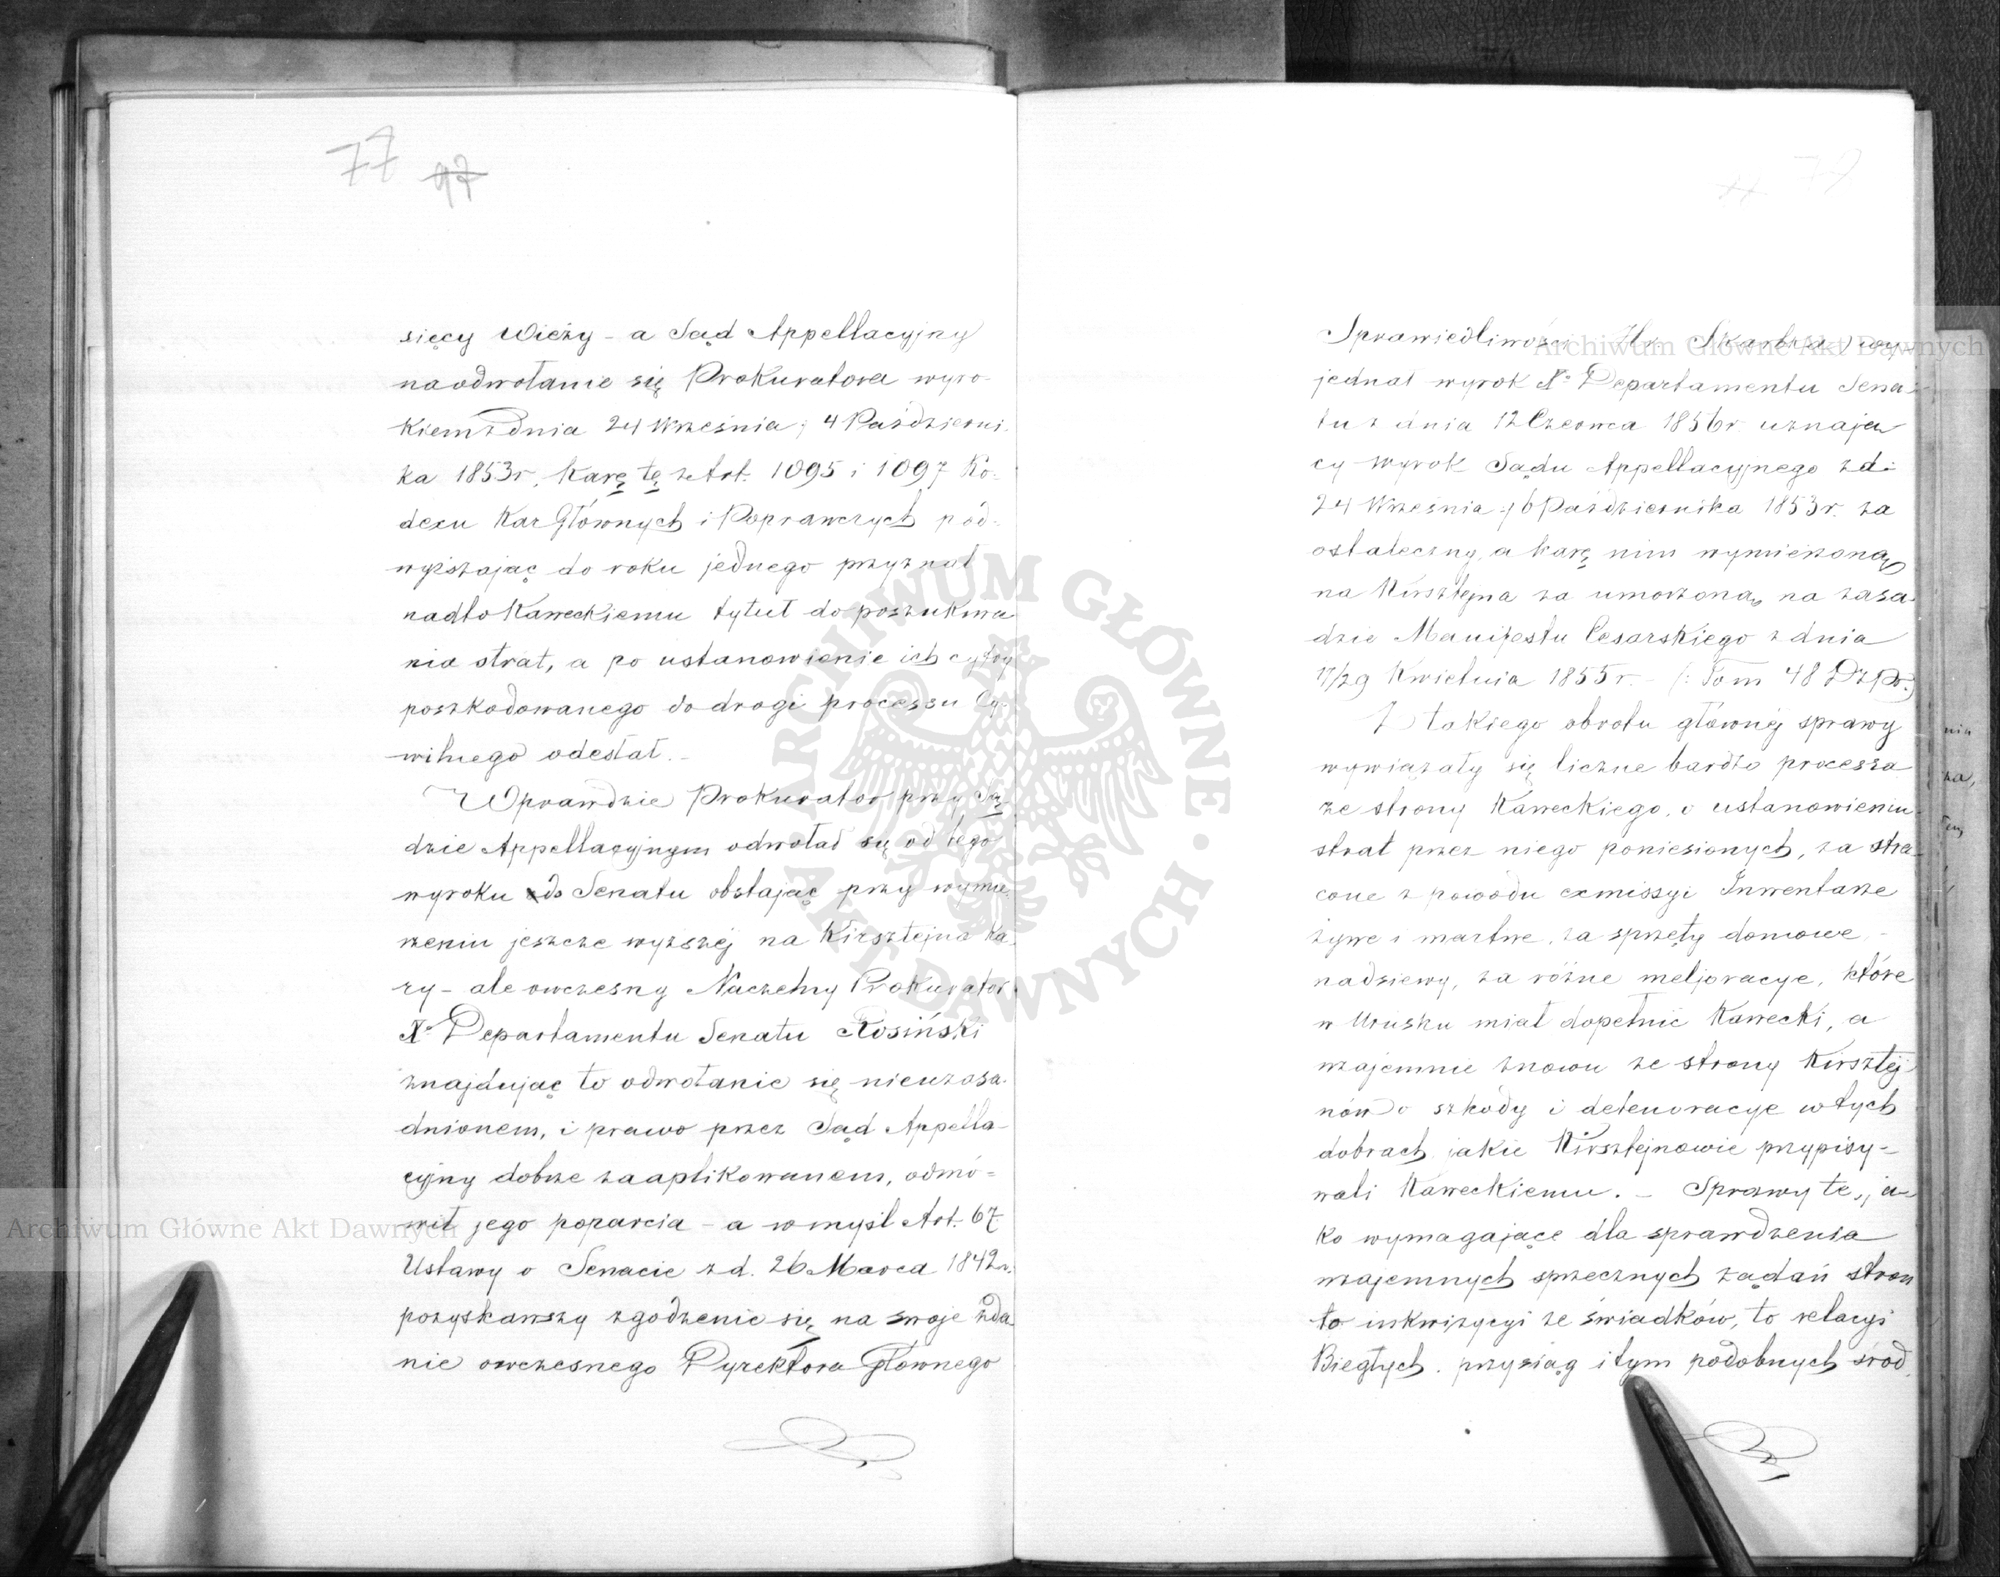 77 97
sięcy Wieży – a Sąd Appellacyjny
na odwołanie się Prokuratora wyro-
kiem z dnia 24 Września / 4 Październi-
ka 1853 r. karę tę z Art. 1095 i 1097 Ko-
dexu Kar Głównych i Poprawczych pod-
wyższając do roku jednego przyznał
nadto Kaweckiemu tytuł do poszukiwa-
nia strat, a po ustanowienie ich cyfry
poszkodowanego do drogi processu Cy-
wilnego odesłał. –
Wprawdzie Prokurator przy Są-
dzie Appellacyjnym odwołał się od tego
wyroku do Senatu obstając przy wymie-
rzeniu jeszcze wyższéj na Kirsztejna ka-
ry – ale owczesny Naczelny Prokurator
X° Departamentu Senatu Rosiński
znajdując to odwołanie się nieuzasa-
dnionem, i prawo przez Sąd Appella-
cyjny dobrze zaaplikowanem, odmó-
wił jego poparcia – a w myśl Art. 67
Ustawy o Senacie z d. 26 Marca 1842 r.
pozyskawszy zgodzenie się na swoje zda-
nie owczesnego Dyrektora Głównego
78
Sprawiedliwości Hr. Skarbka, wy-
jednał wyrok X° Departamentu Sena-
tu z dnia 12 Czerwca 1856 r. uznają-
cy wyrok Sądu Appellacyjnego z d.
24 Września / 6 Października 1853 r. za
ostateczny, a karę nim wymierzoną
na Kirsztejna za umorzoną, na zasa-
dzie Manifestu Cesarskiego z dnia
17/29 Kwietnia 1855 r. – (: Tom 48 Dz Pr:)
Z takiego obrotu głównéj sprawy
wywiązały się liczne bardzo processa
ze strony Kaweckiego, o ustanowieniu
strat przez niego poniesionych, za stra-
cone z powodu exmissyi Inwentarze
żywe i martwe, za sprzęty domowe –
nadsiewy, za różne meljoracye, które
w Urusku miał dopełnić Kawecki, a
wzajemnie znowu ze strony Kirsztej-
nów o szkody i detenoracye w tych
dobrach jakie Kirsztejnowie przypisy-
wali Kaweckiemu. – Sprawy te, ja-
ko wymagające dla sprawdzenia
wzajemnych sprzecznych żądań stron
to inkwizycyi ze świadków, to relacyi
Biegłych, przysiąg i tym podobnych środ-
Archiwum Główne Akt Dawnych
Archiwum Główne Akt Dawnych
ARCHIWUM GŁÓWNE · AKT DAWNYCH ·